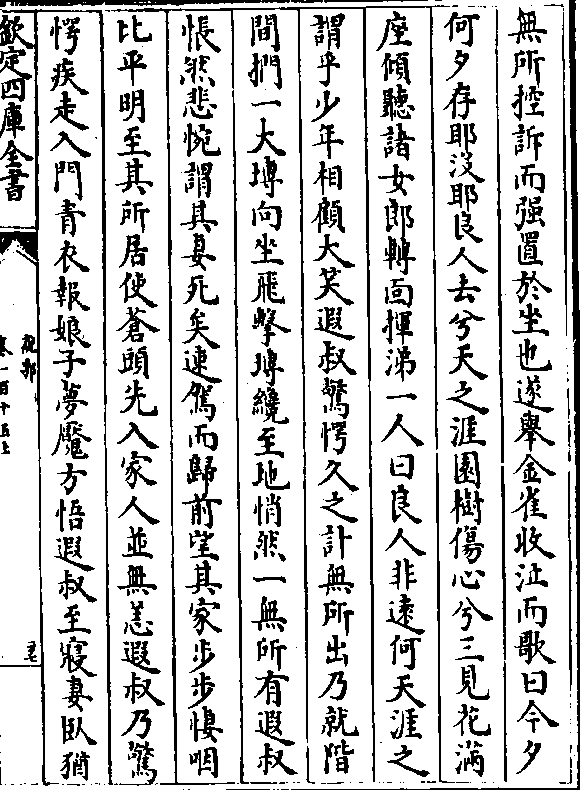 無所控訴而强置於坐也遂舉金雀收泣而歌曰今夕
何夕存耶没耶良人去兮天之涯園樹傷心兮三見花滿
座傾聽諸女郎轉面揮涕一人曰良人非遠何天涯之
謂乎少年相顧大笑遐叔驚愕久之計無所出乃就階
間捫一大塼向坐飛擊塼纔至地悄然一無所有遐叔
悵然悲惋謂其妻死矣速駕而歸前望其家步步悽咽
比平明至其所居使蒼頭先入家人並無恙遐叔乃驚
愕疾走入門青衣報娘子夢魘方悟遐叔至寢妻卧猶
欽定四庫全書
說郛
卷一百十五上